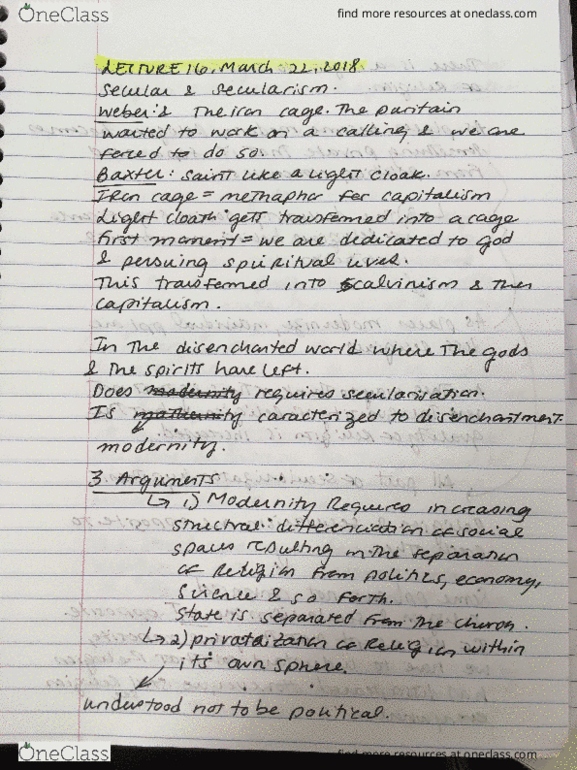 OneClass
find more resources at oneclass.com
LECTURE 16, March 22, 2018.
Secular & secularism.
Weber: The iron cage. The puritain
wanted to work on a calling, & we are
forced to do so.
Baxter: saint like a light cloak.
Iron cage = methaphor for capitalism
Light cloath gets transfremed into a cage
first moment = we are dedicated to god
& persuing spiritual lives.
This transformed into calvinism & then
capitalism.
In The disenchanted world where The gods
& the spirits have left.
Does modernity requires secularisation.
Is caracterized to disenchantment.
modernity.
3 Arguments
↳ 1) Modernity Requires increasing
structral differenciation of social
spaces resulting in the separation
of Religion from politics, economy,
science & so forth.
State is separated from the church.
↳ 2) privataization of Religion within
its own sphere.
understood not to be political.
OneClass
find more resources at oneclass.com